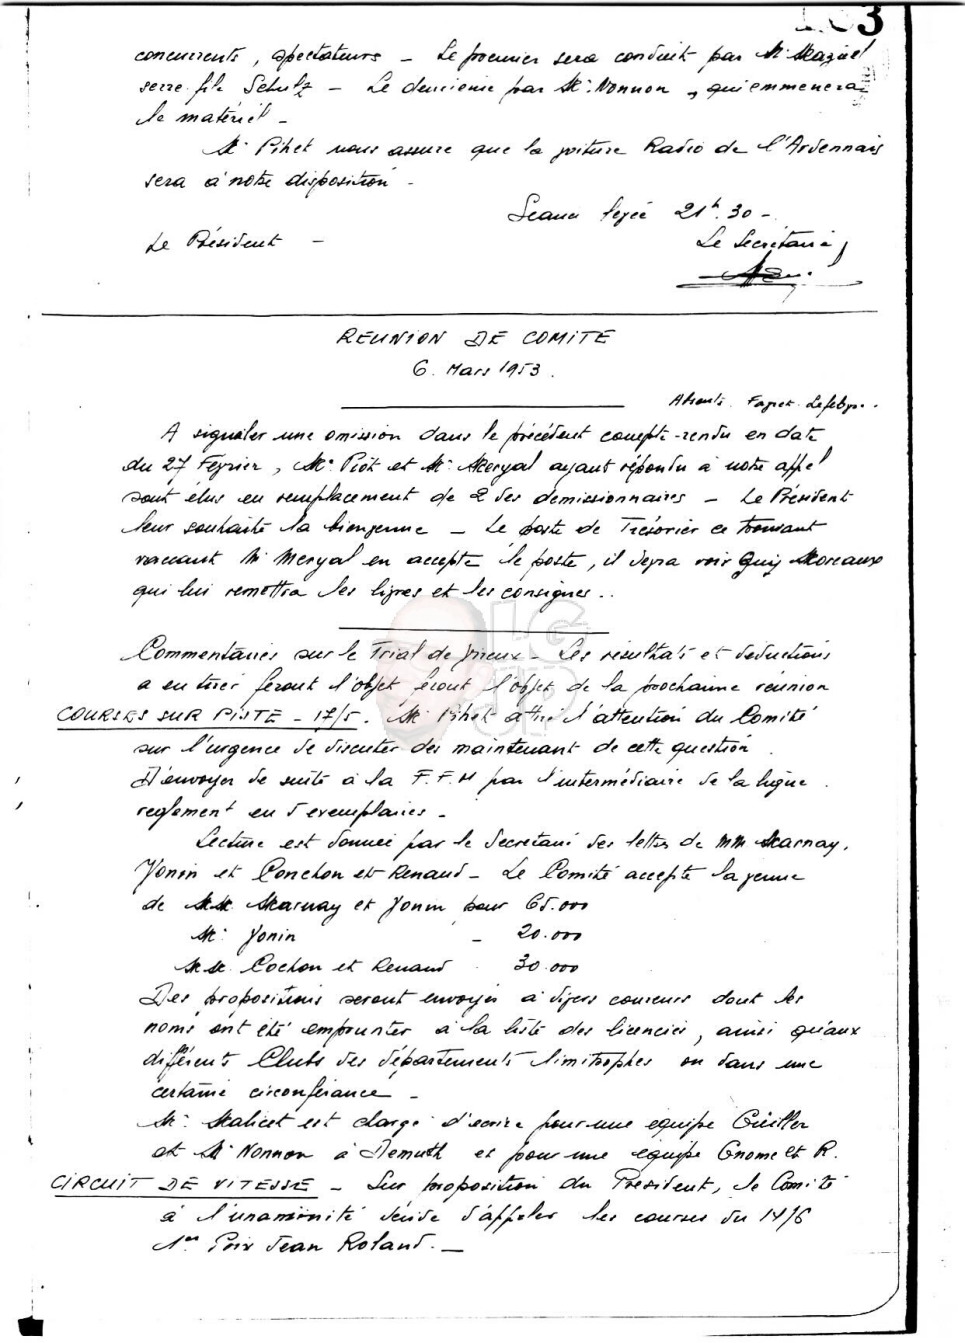 163
concurrents, spectateurs - Le premier sera conduit par Mr Maziel
serre file Schulz - Le deuxieme par Mr Nonnon, qui emmenera
le matériel -
Mr Pihet nous assure que la voiture Radio de l'Ardennais
sera à notre disposition -
Seance levée 21h.30 -
Le Président - Le Secrétaire
REUNION DE COMITE
6. Mars 1953.
Absents. Favret. Lefebvre.
A signaler une omission dans le précédent compte-rendu en date
du 27 Février, Mr Piot et Mr Meryal ayant répondu à notre appel
sont élus en remplacement de 2 des demissionnaires - Le Président
leur souhaite la bienvenue - Le poste de Trésorier ce trouvant
vaccant Mr Meryal en accepte le poste, il devra voir Guy Moreaux
qui lui remettra les livres et les consignes..
Commentaires sur le Trial de Vireux - Les résultats et déductions
a en tirer feront l'objet feront l'objet de la prochaine réunion
COURSES SUR PISTE - 17/5. Mr Pihet attire l'attention du Comité
sur l'urgence de discuter des maintenant de cette question.
D'envoyer de suite à la F.F.M par l'intermédiaire de la ligue.
reglement en 5 exemplaires -
Lecture est donnée par le Secretaire des lettres de MM Marnay,
Vonin et Conchon et Renaud - Le Comité accepte la venue
de MM. Marnay et Vonin pour 65.000
Mr Vonin - 20.000
MM. Cochon et Renaud - 30.000
Des propositions seront envoyées à divers coureurs dont les
noms ont été emprunter à la liste des licenciés, ainsi qu'aux
différents Clubs des départements limitrophes ou dans une
certaine circonférance -
Mr Malicet est chargé d'ecrire pour une equipe Cuiller
et Mr Nonnon à Demuth et pour une équipe Gnome et R.
CIRCUIT DE VITESSE - Sur proposition du President, le Comité
à l'unamimité décide d'appeler les courses du 14/6
1er Prix Jean Roland. -